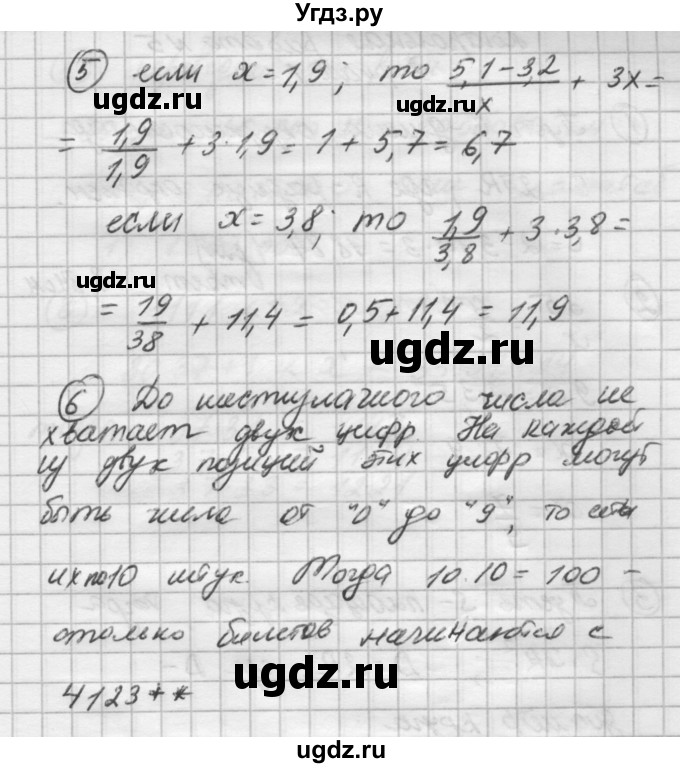 Угдз.ру
⑤ если x = 1,9; то (5,1 – 3,2)/x + 3x =
ugdz.ru ugdz.ru
= 1,9/1,9 + 3 · 1,9 = 1 + 5,7 = 6,7
если x = 3,8; то 1,9/3,8 + 3 · 3,8 =
ugdz.ru
= 19/38 + 11,4 = 0,5 + 11,4 = 11,9
ugdz.ru
⑥ До шестизначного числа не
хватает двух цифр. На каждой
из двух позиций этих цифр могут
быть числа от "0" до "9", то есть
ugdz.ru
их по 10 штук. Тогда 10 · 10 = 100 –
столько билетов начинаются с
ugdz.ru
4123**
ugdz.ru